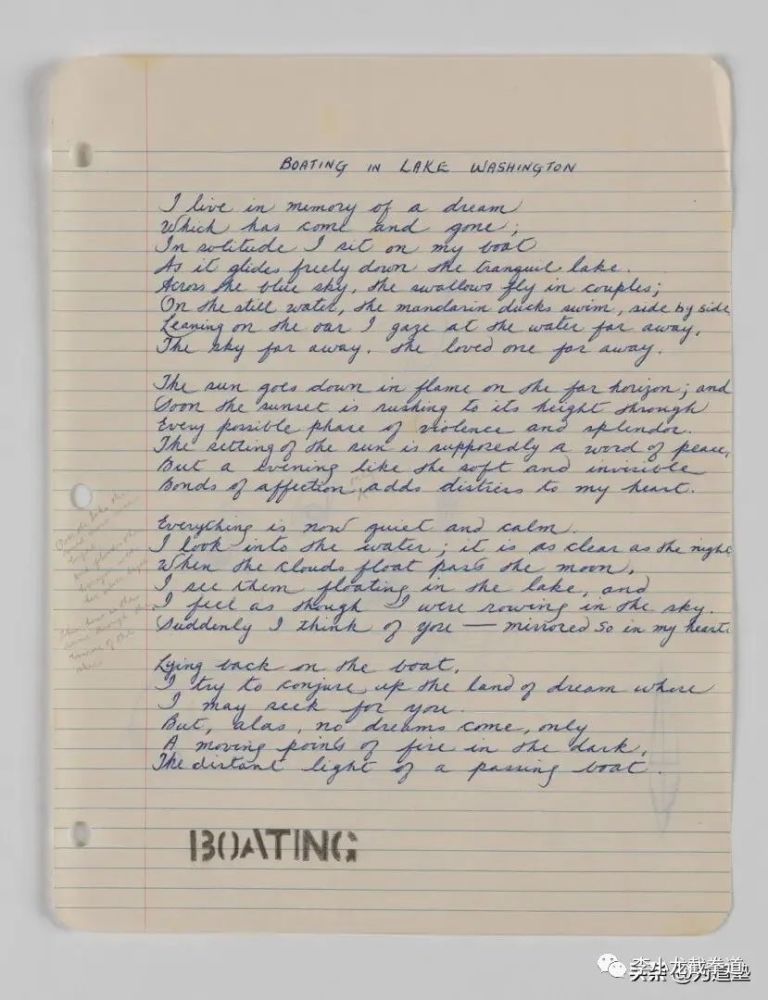 BOATING IN LAKE WASHINGTON
I live in memory of a dream
Which has come and gone;
In solitude I sit on my boat
As it glides freely down the tranquil lake.
Across the blue sky, the swallows fly in couples;
On the still water, the mandarin ducks swim, side by side
Leaning on the oar I gaze at the water far away,
The sky far away. The loved one far away.
The sun goes down in flame on the far horizon; and
Soon the sunset is rushing to its height through
Every possible phase of violence and splendor.
The setting of the sun is supposedly a word of peace,
But a evening like the soft and invisible
Bonds of affection adds distress to my heart.
Everything is now quiet and calm.
I look into the water; it is as clear as the night
When the clouds float pass the moon,
I see them floating in the lake, and
I feel as though I were rowing in the sky.
Suddenly I think of you — mirrored so in my heart.
Lying back on the boat,
I try to conjure up the land of dream where
I may seek for you.
But, alas, no dreams come, only
A moving points of fire in the dark,
The distant light of a passing boat.
BOATING
李小龙截拳道
头条